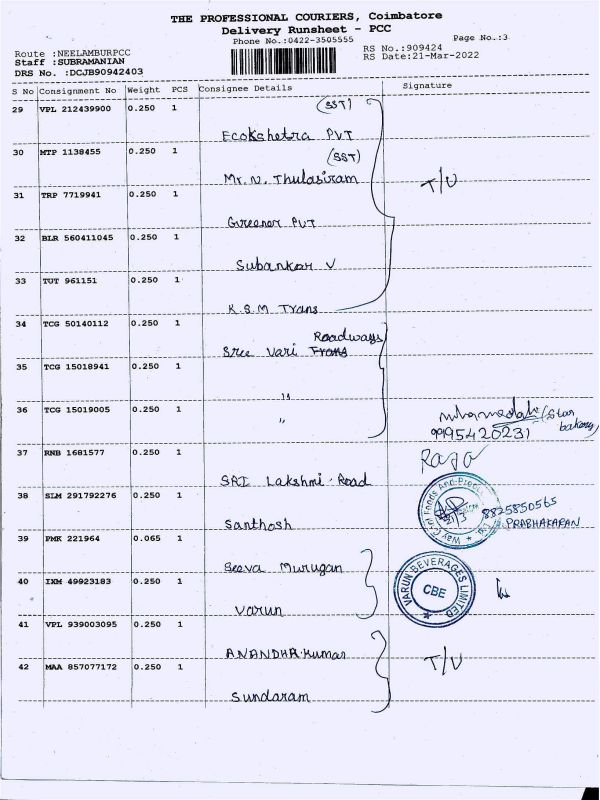 THE PROFESSIONAL COURIERS, Coimbatore
Delivery Runsheet - PCC
Phone No.:0422-3505555
Page No.:3
Route :NEELAMBURPCC
RS No.:909424
Staff :SUBRAMANIAN
RS Date:21-Mar-2022
DRS No. :DCJB90942403
S No Consignment No Weight PCS Consignee Details Signature
29 VPL 212439900 0.250 1 (SST)
Ecokshetra PVT
30 MTP 1138455 0.250 1 (SST)
Mr. N. Thulasiram
T/U
31 TRP 7719941 0.250 1
Greener PVT
32 BLR 560411045 0.250 1
Subankar V
33 TUT 961151 0.250 1
K.S.M Trans
34 TCG 50140112 0.250 1 Roadways
Sree Vari Trans
35 TCG 15018941 0.250 1
"
36 TCG 15019005 0.250 1 "
(Star bakery)
9995420231
37 RNB 1681577 0.250 1
Raja
SRI Lakshmi Road
38 SLM 291792276 0.250 1
8825850565
Santhosh
PRABHAKARAN
39 PMK 221964 0.065 1
Seeva Murugan
40 IXM 49923183 0.250 1
VARUN BEVERAGES LIMITED
CBE
Varun
41 VPL 939003095 0.250 1
ANANDHA Kumar
T/U
42 MAA 857077172 0.250 1
Sundaram